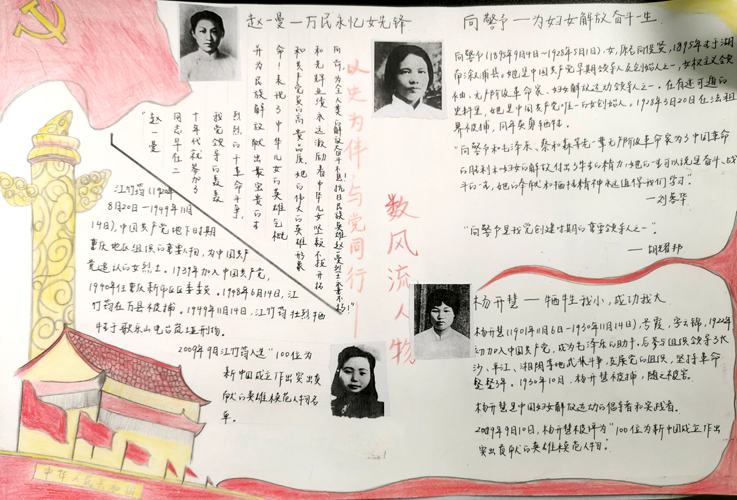 赵一曼一万民永忆女先锋
"赵一曼
同志早在二
十年代就参加了
我党领导的轰轰
烈烈的大革命斗争,
并为民族解放献出最宝贵的生
命!表现了中华儿女的英雄气概
和共产党员的高贵品质,她的伟大的英雄形象
和光辉业绩永远激励着中华儿女坚毅不拔开拓
向前,为全人类的解放奋斗不息,抗日民族英雄赵一曼烈士永垂不朽!"
以史为伴·与党同行——
数风流人物
江竹筠(1920年
8月20日—1949年11月
14日),中国共产党地下时期
重庆地区组织的重要人物,为中国共产
党追认的女烈士。1939年加入中国共产党,
1940年任重庆新市区区委委员。1948年6月14日,江
竹筠在万县被捕。1949年11月14日,江竹筠壮烈牺
牲于歌乐山电台岚垭刑场。
2009年9月江竹筠入选"100位为
新中国成立作出突出贡
献的英雄模范人物名
单。
中华人民共和国
向警予—为妇女解放奋斗一生
向警予(1895年9月4日~1928年5月1日),女,原名向俊贤,1895年生于湖
南溆浦县,她是中国共产党早期领导人及创始人之一,女权主义领
袖、无产阶级革命家、妇女解放运动领导人之一。在有迹可循的
史料里,她是中国共产党唯一的女创始人。1928年3月20日在法租
界被捕,同年英勇牺牲。
"向警予和毛泽东、蔡和森等老一辈无产阶级革命家为了中国革命
的胜利和妇女的解放付出了毕生的精力,她的一生可以说是奋斗、战
斗的一生,她的奉献和牺牲精神永远值得我们学习."
"向警予是我党创建时期的重要领导人之一".
—胡耀邦
杨开慧—牺牲我小,成功我大
杨开慧(1901年11月6日-1930年11月14日),号霞,字云锦,1922年
初加入中国共产党,成为毛泽东的助手。后参与组织领导了长
沙、平江、湘阴等地武装斗争,发展党的组织,坚持革命
整整3年。1930年10月,杨开慧被捕,随之被害。
杨开慧是中国妇女解放运动的倡导者和实践者。
2009年9月10日,杨开慧被评为"100位为新中国成立作出
突出贡献的英雄模范人物".